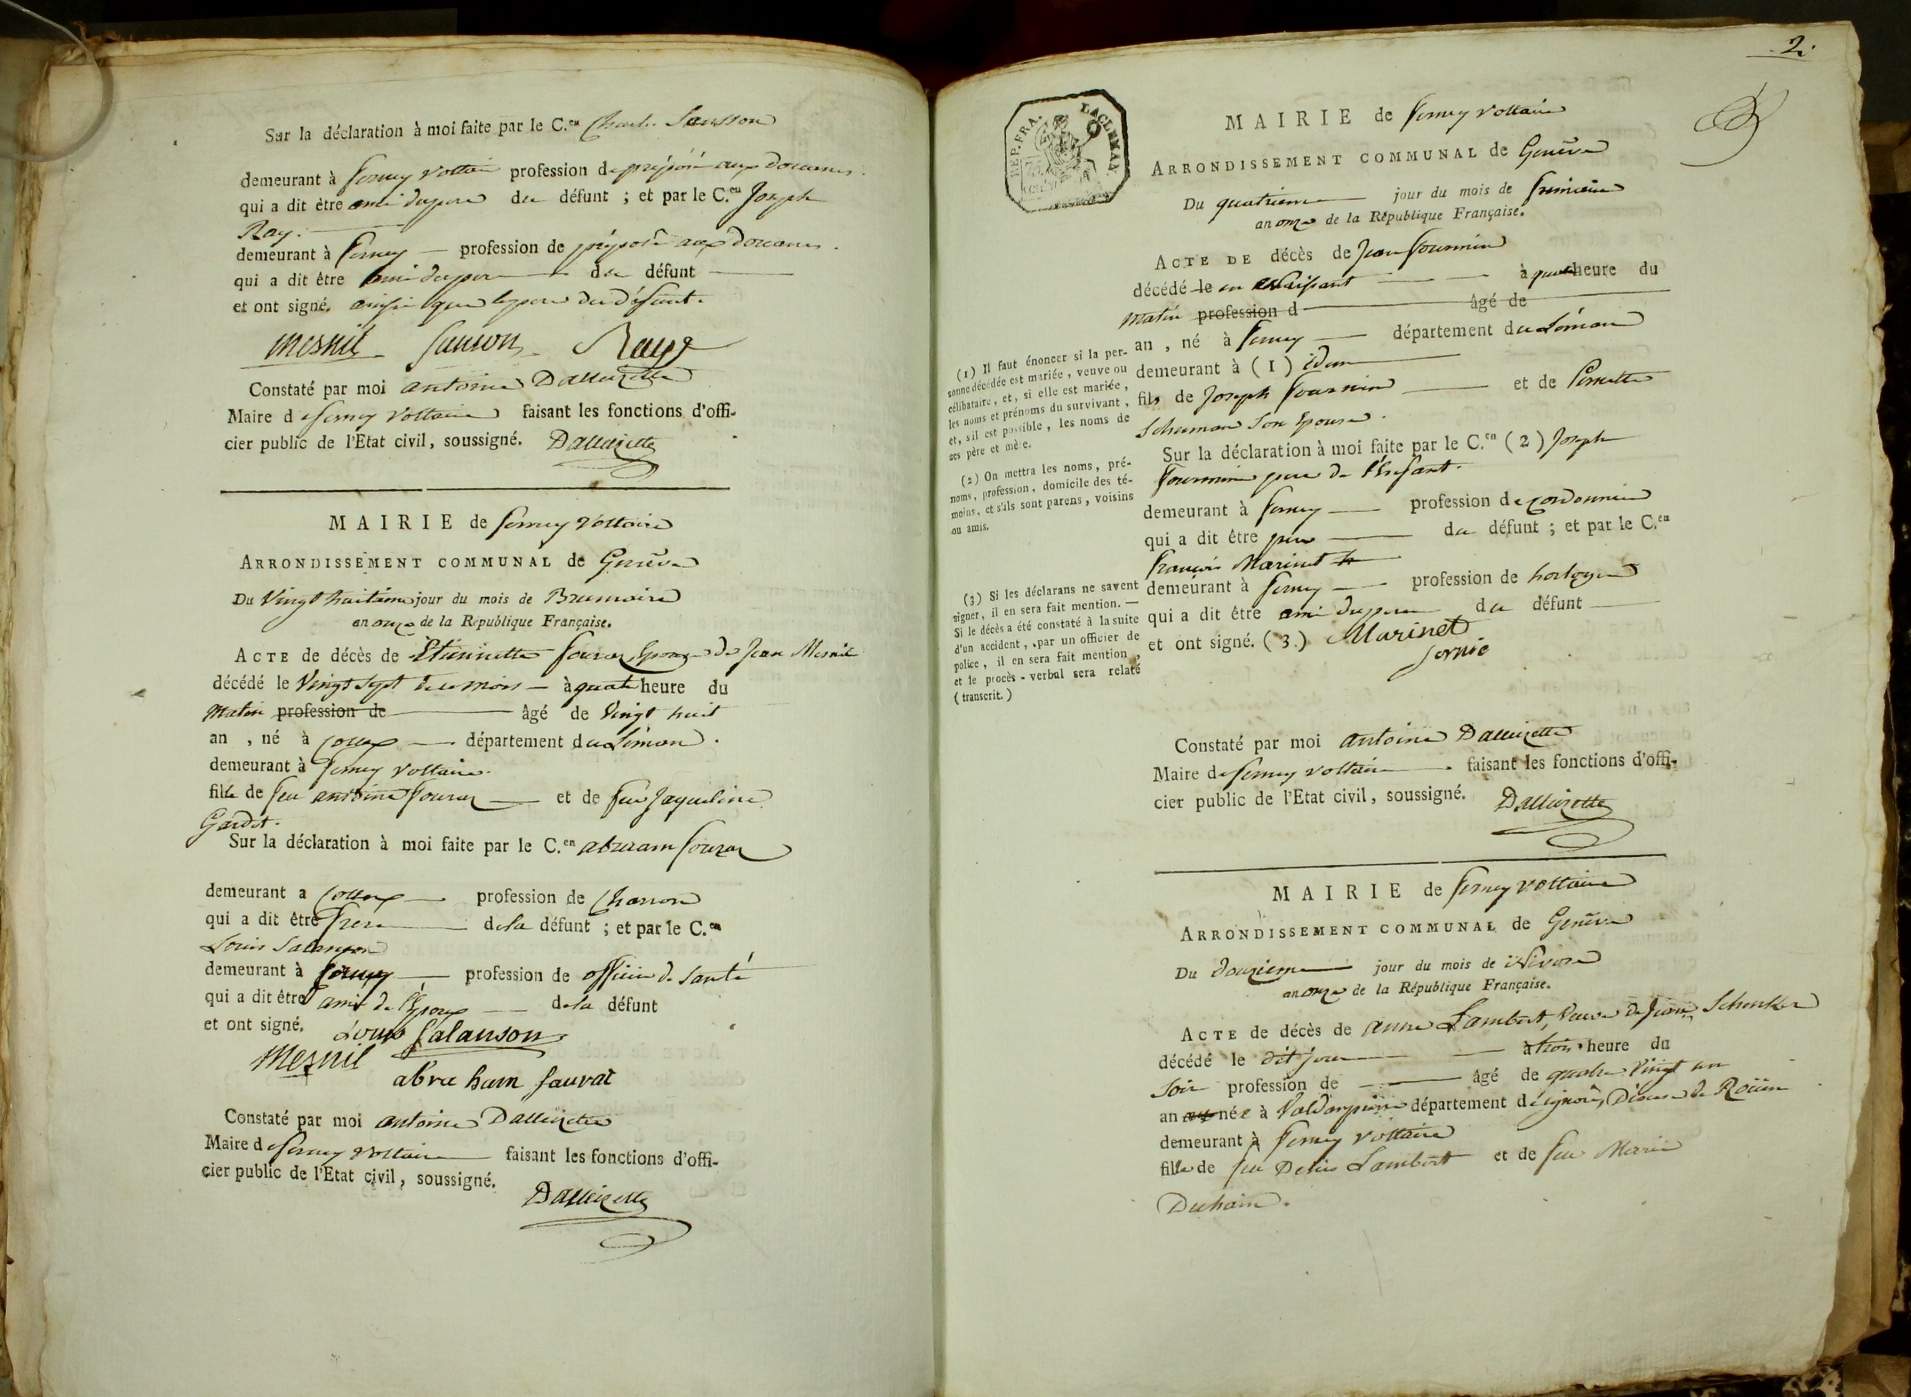 Sur la déclaration à moi faite par le C.en Charle Sansson
demeurant à ferney voltaire profession de préposé aux douanes.
qui a dit être ami du pere du défunt ; et par le C.en Joseph
Ray.
demeurant à ferney profession de préposé aux douanes.
qui a dit être ami du pere du défunt
et ont signé. ainsi que le pere du défunt.
mesnil Sanson Raye
Constaté par moi antoine Dallizette
Maire de ferney voltaire faisant les fonctions d'offi-
cier public de l'Etat civil, soussigné. Dallizette
MAIRIE de ferney voltaire
ARRONDISSEMENT COMMUNAL de Genève
Du Vingt huitieme jour du mois de Brumaire
an onze de la République Française.
ACTE de décès de Etiennette Epouse de Jean Mesnil
décédé le Vingt sept du mois à quatre heure du
matin profession de âgé de Vingt huit
an , né à collex département du Léman.
demeurant à ferney voltaire.
fille de feu antoine et de feue Jaqueline
Gardet.
Sur la déclaration à moi faite par le C.en abraam
demeurant a collex profession de Charron
qui a dit être frere de la défunt ; et par le C.en
Louis Salanson
demeurant à ferney profession de officier de santé
qui a dit être ami de l'Epoux de la défunt
et ont signé. Louis Salanson
Mesnil
abra ham fauraz
Constaté par moi antoine Dallizette
Maire de ferney voltaire faisant les fonctions d'offi-
cier public de l'Etat civil, soussigné.
Dallizette
2.
REP. FRA.
MAIRIE de ferney voltaire
ARRONDISSEMENT COMMUNAL de Genève
Du quatrieme jour du mois de frimaire
an onze de la République Française.
ACTE DE décès de Jean fournier
décédé le en naissant à quatre heure du
matin profession d âgé de
an , né à ferney département du Léman
demeurant à (1) idem
fils de Joseph fournier et de Pernette
Scheuman son Epouse.
Sur la déclaration à moi faite par le C.en (2) Joseph
fournier pere de l'Enfant.
demeurant à ferney profession de cordonnier
qui a dit être pere du défunt ; et par le C.en
françois Marinet
demeurant à ferney profession de horloger
qui a dit être ami du pere du défunt
et ont signé. (3.) Marinet
(1) Il faut énoncer si la per-
sonne décédée est mariée, veuve ou
célibataire, et, si elle est mariée,
les noms et prénoms du survivant,
et, s'il est possible, les noms de
ses père et mère.
(2) On mettra les noms, pré-
noms, profession, domicile des té-
moins, et s'ils sont parens, voisins
ou amis.
(3) Si les déclarans ne savent
signer, il en sera fait mention. —
Si le décès a été constaté à la suite
d'un accident, par un officier de
police, il en sera fait mention,
et le procès-verbal sera relaté
(transcrit.)
Constaté par moi antoine Dallizette
Maire de ferney voltaire faisant les fonctions d'offi-
cier public de l'Etat civil, soussigné. Dallizette
MAIRIE de ferney voltaire
ARRONDISSEMENT COMMUNAL de Genève
Du douzieme jour du mois de Nivose
an onze de la République Française.
ACTE de décès de anne Lambert, Veuve de Jean Schenker
décédé le dit jour à trois heure du
soir profession de âgé de quatre Vingt un
an née à département d
demeurant à ferney voltaire
fille de feu Denis Lambert et de feu Marie
Duhain.